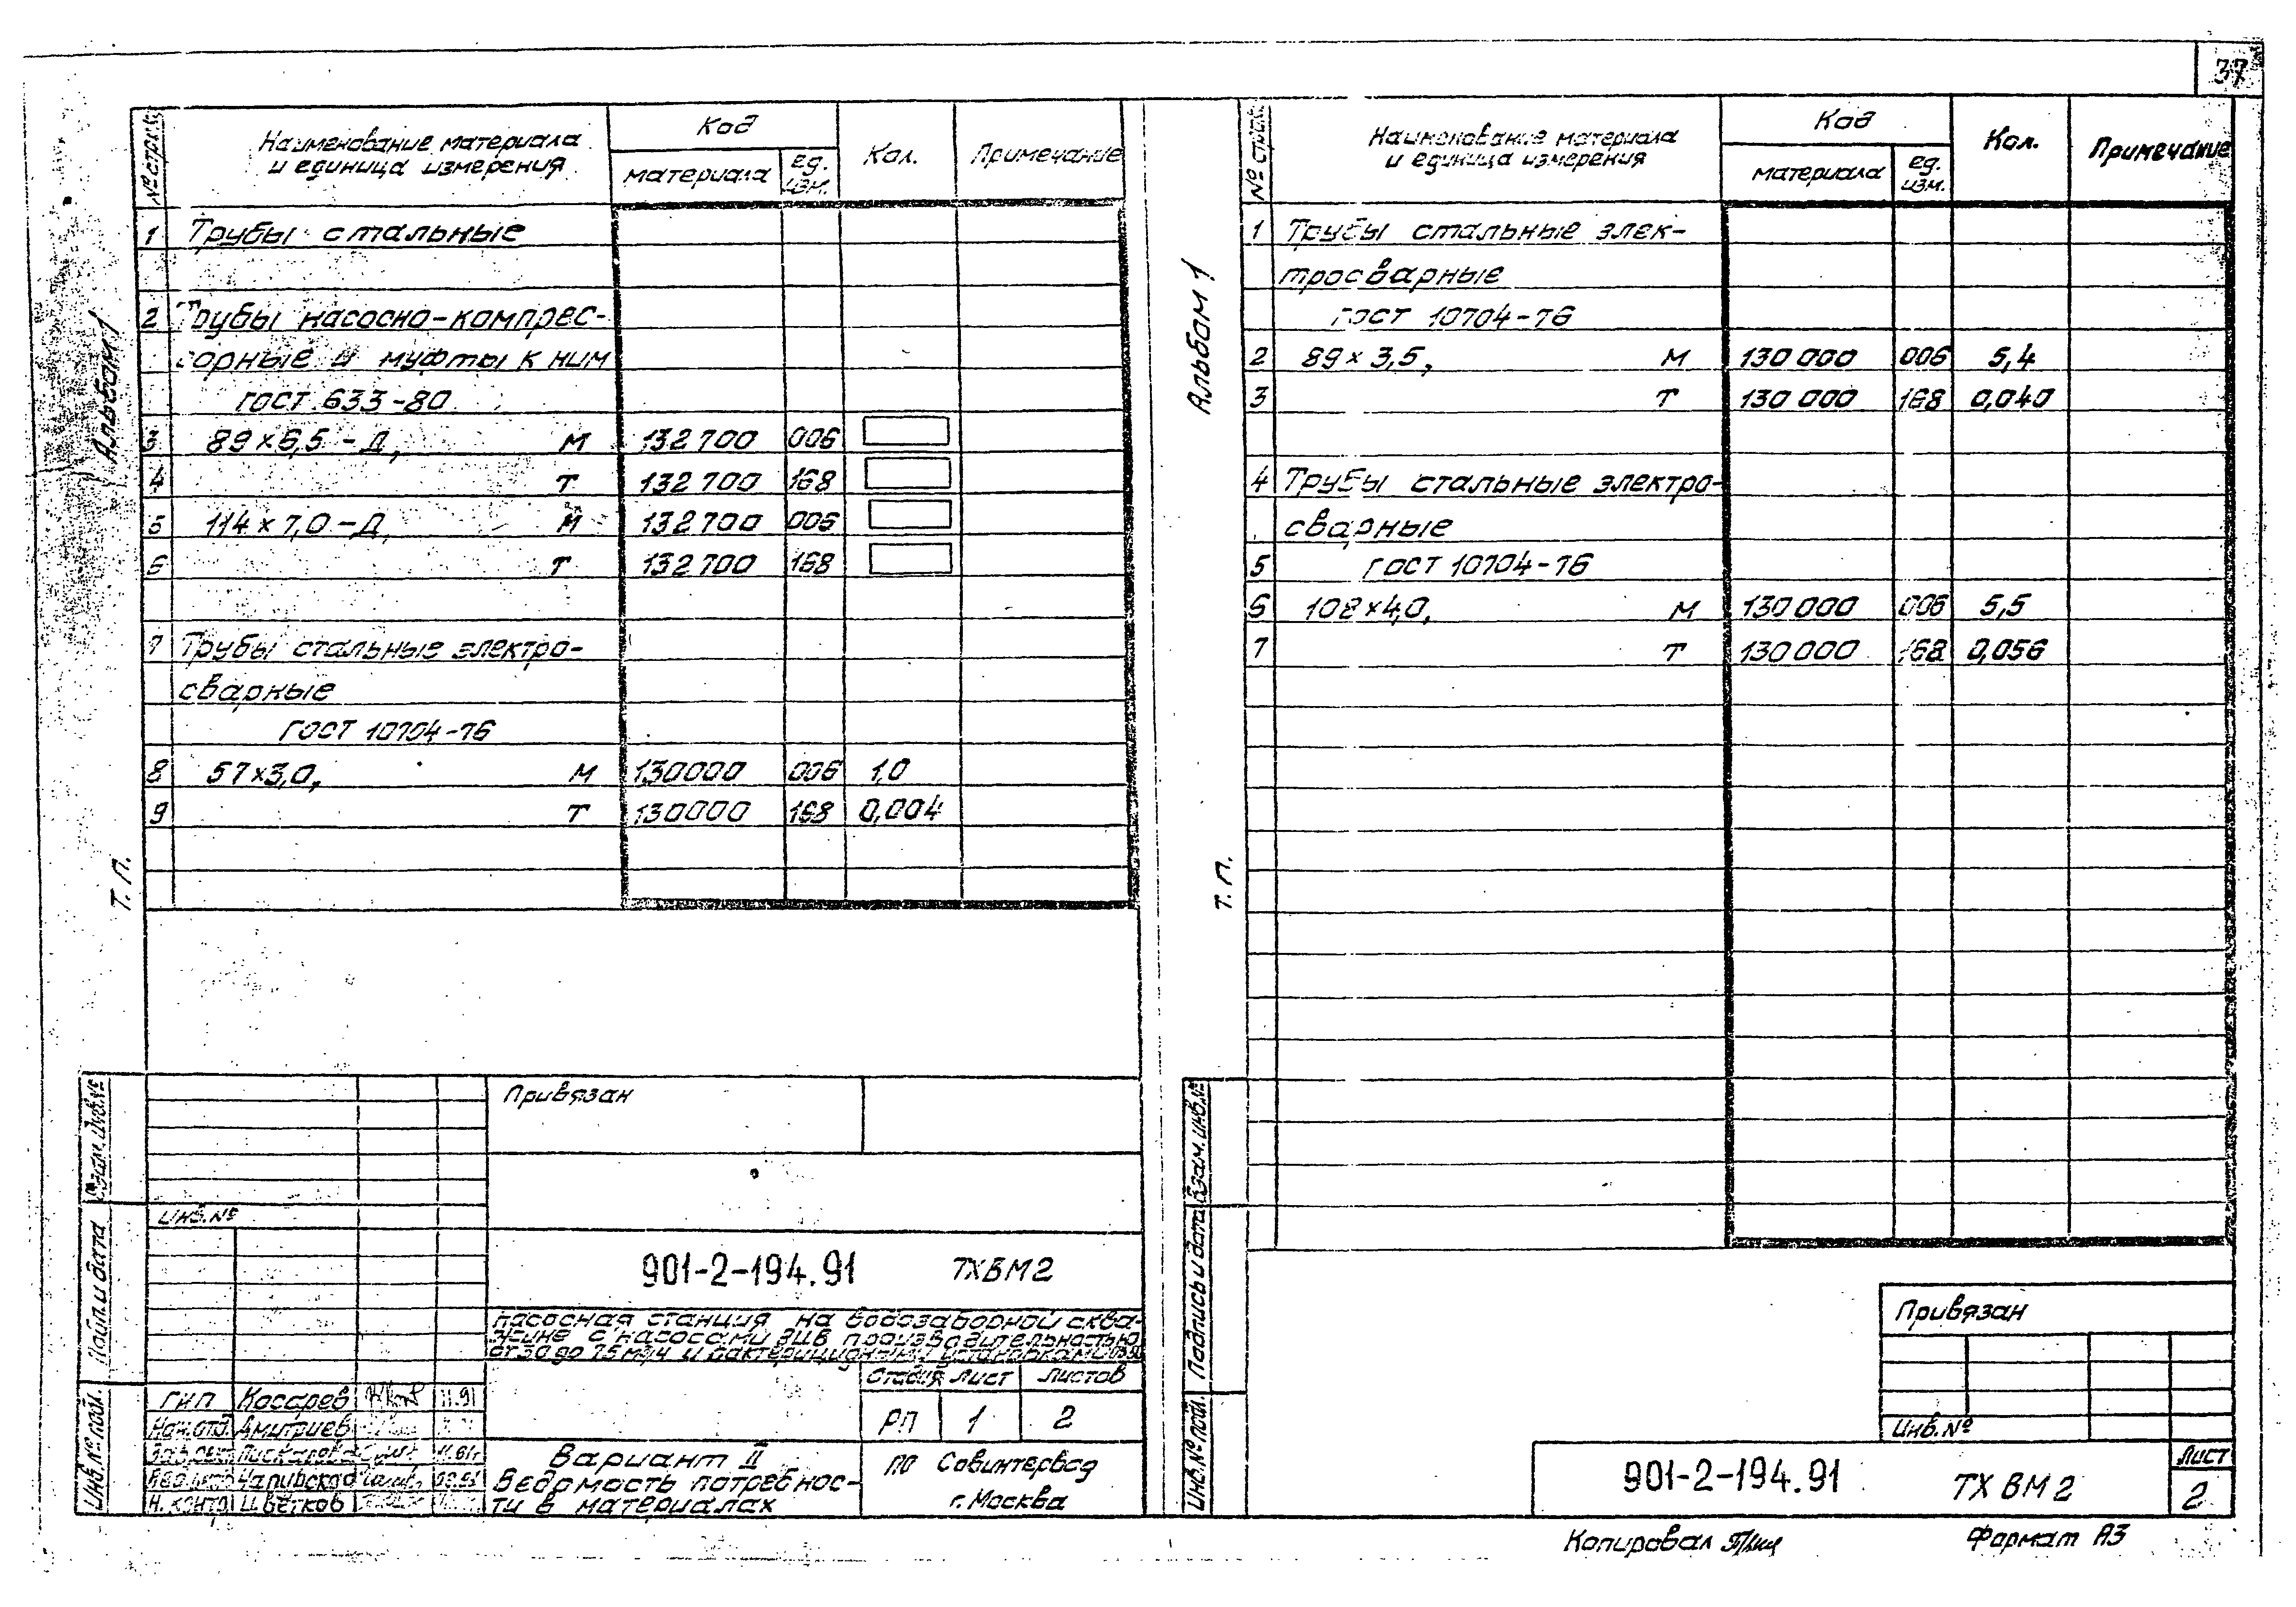 37
Альбом 1
Т. П.
№ строки
Наименование материала
и единица измерения
Код
материала
ед.
изм.
Кол.
Примечание
1 Трубы стальные
2 Трубы насосно-компрес-
сорные и муфты к ним
ГОСТ 633-80
3 89×6,5-Д, м 132700 006
4 т 132700 168
5 114×7,0-Д, м 132700 006
6 т 132700 168
7 Трубы стальные электро-
сварные
ГОСТ 10704-76
8 57×3,0, м 130000 006 1,0
9 т 130000 168 0,004
Привязан
Инв.№
901-2-194.91 ТХ ВМ2
Насосная станция на водозаборной сква-
жине с насосами ЭЦВ производительностью
от 30 до 75 м3/ч и бактерицидными установками
Стадия Лист Листов
РП 1 2
ГИП Косарев 11.91
Нач.отд. Дмитриев
Пискарева
Н.контр Цветков
Вариант II
Ведомость потребнос-
ти в материалах
ПО Совинтервод
г. Москва
Взам.инв.№
Подп. и дата
Инв.№ подл.
Альбом 1
Т. П.
№ строки
Наименование материала
и единица измерения
Код
материала
ед.
изм.
Кол.
Примечание
1 Трубы стальные элек-
тросварные
ГОСТ 10704-76
2 89×3,5, м 130 000 006 5,4
3 т 130 000 168 0,040
4 Трубы стальные электро-
сварные
5 ГОСТ 10704-76
6 108×4,0, м 130 000 006 5,5
7 т 130 000 168 0,056
Взам.инв.№
Подпись и дата
Инв.№ подл.
Привязан
Инв.№
901-2-194.91 ТХ ВМ2
Лист
2
Копировал
Формат А3